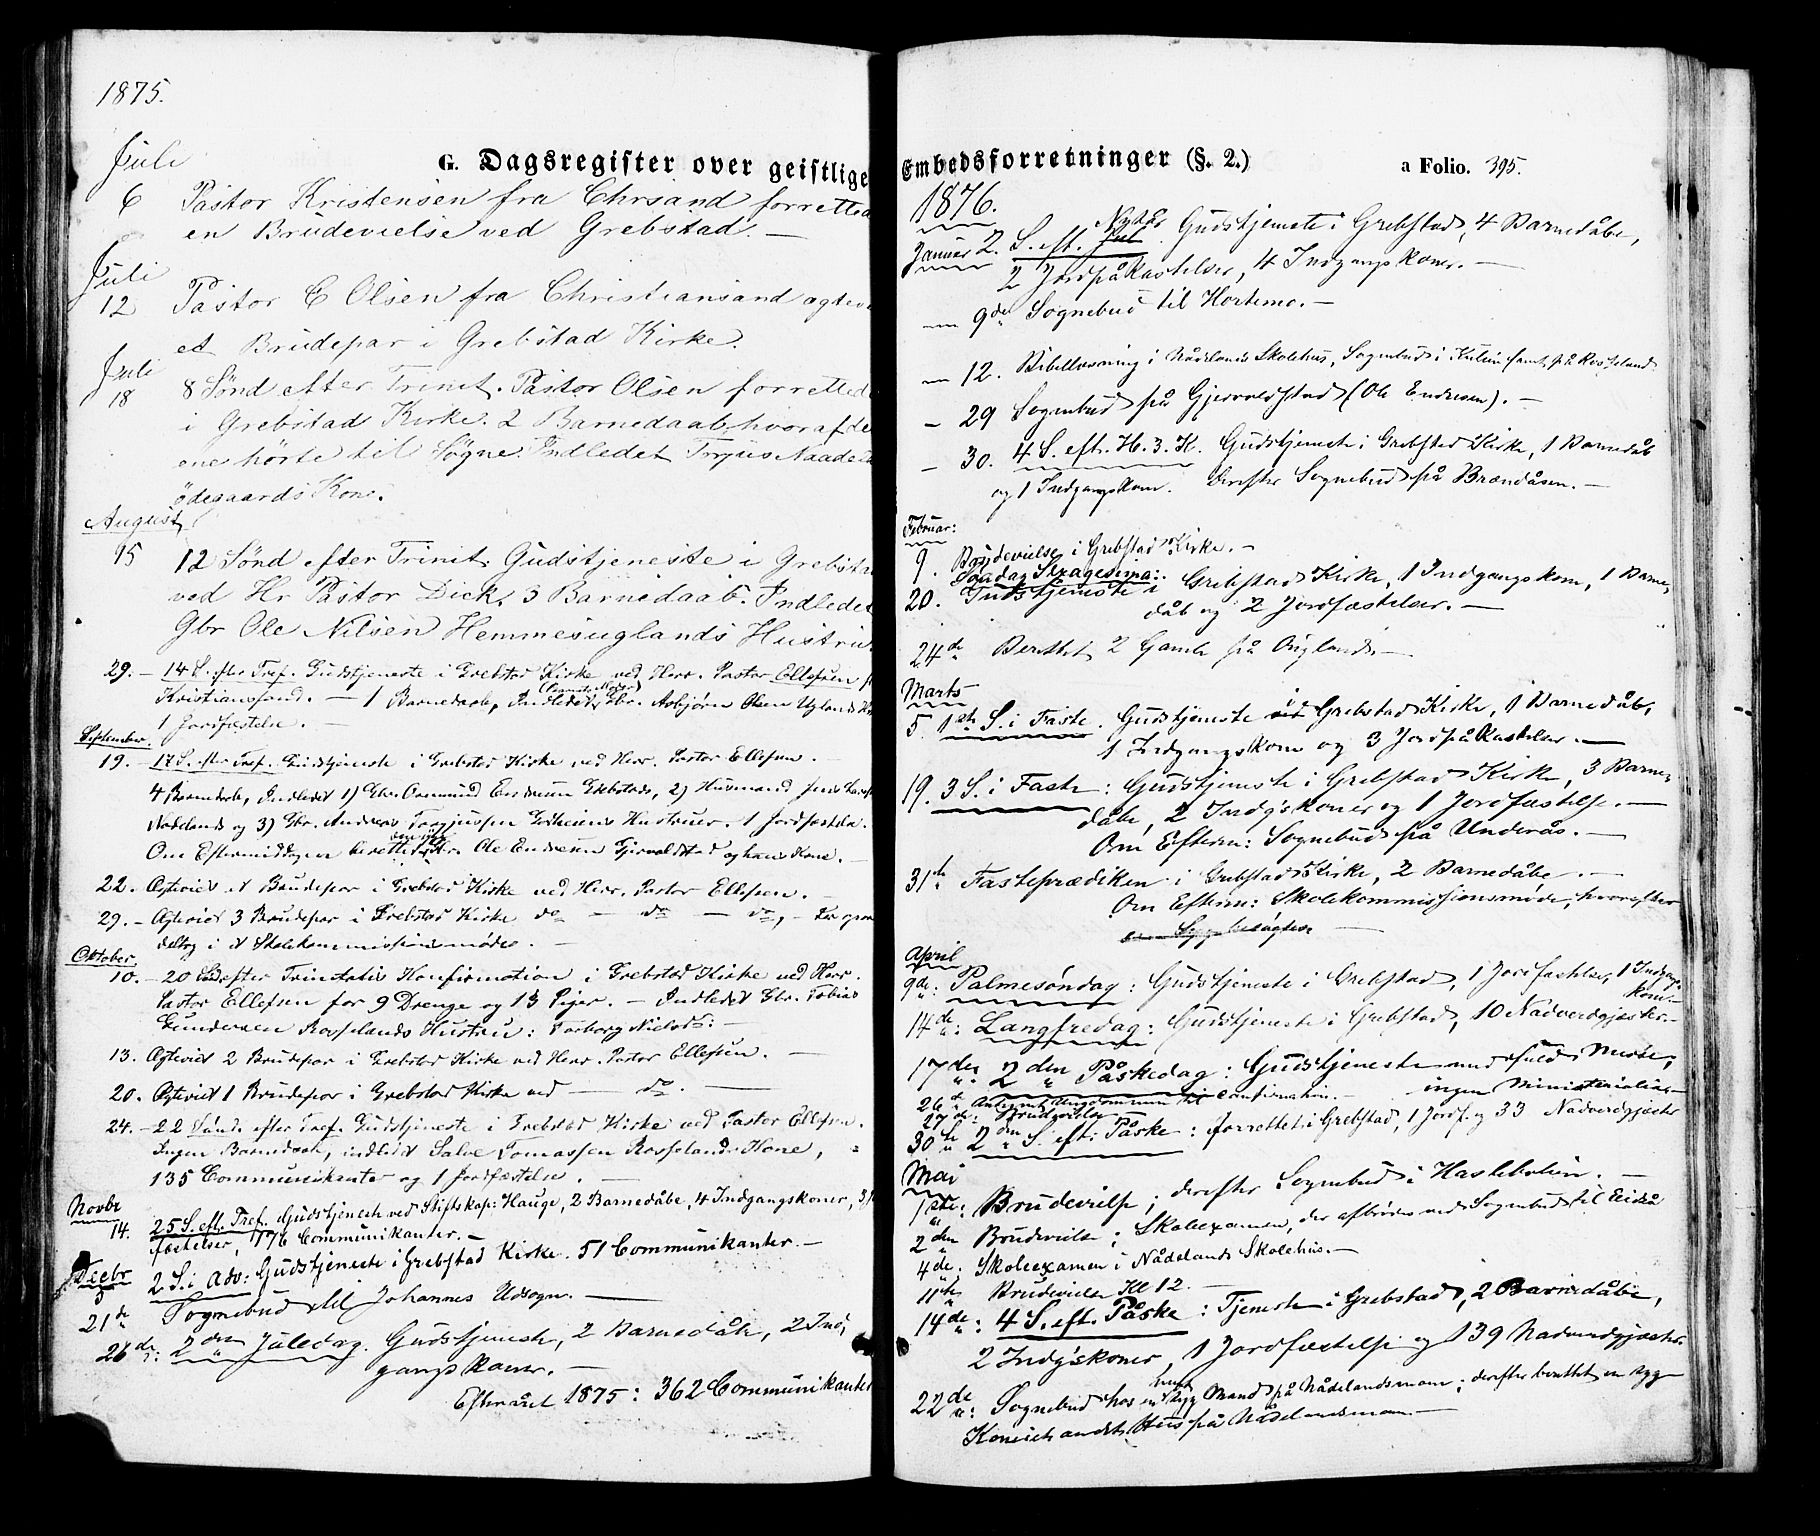 1875.
G. Dagsregister over geistlige
Juli
6 Pastor Kristensen fra Chrsand forrettede
en Brudevielse ved Grebstad. —
Juli
12 Pastor C Olsen fra Christiansand
et Brudepar i Grebstad Kirke.
Juli
18 8 Sönd efter Trinit. Pastor Olsen forrettede
i Grebstad Kirke. 2 Barnedaab, hvoraf de
ene hörte til Søgne. Indledet
ödegaards Kone.
August
15 12 Sönd efter Trinit. Gudstjeneste i Grebsta
ved Hr Pastor Dick. 3 Barnedaab. Indledet
Gbr Ole Nilsen Hemmesuglands Hustru
29. — 14 S. efter Tref. Gudstjeneste i Grebstad Kirke ved Herr. Pastor Ellefsen
Kristianssand. — 1 Barnedaab, Indledet Gbr. Asbjørn Olsen Uglands
1 Jordfæstelse. —
September.
19. — 17 S. efter Tref. Gudstjeneste i Grebstad Kirke ved Herr. Pastor Ellefsen. —
4 Barnedaab, Indledet 1) Gbr. Osmund Grebstads, 2) Husmand Jens
Nådelands og 3) Gbr. Andreas Torgjussen Hustruer. 1 Jordfæstelse.
Om Eftermiddagen berettet Gbr. Ole Endresen og hans Kone. —
22. Egteviet et Brudepar i Grebstad Kirke ved Herr. Pastor Ellefsen.
29. — Egteviet 3 Brudepar i Grebstad Kirke do — do — do, —
deltog i et Skolekommissionsmøde. —
Oktober.
10. — 20 Sønd efter Trinitatis Konfirmation i Grebstad Kirke ved Herr.
Pastor Ellefsen for 9 Drenge og 13 Piger. — Indledet Gbr. Tobias
Gundersen Rosselands Hustru: Torborg —
13. Egteviet 2 Brudepar i Grebstad Kirke ved Herr. Pastor Ellefsen. —
20. Egteviet 1 Brudepar i Grebstad Kirke ved — do. —
24. — 22 Sønd. efter Tref. Gudstjeneste i Grebstad Kirke ved Pastor Ellefsen.
Ingen Barnedaab, indledet Salve Tomassen Rosselands Kone,
135 Communikanter og 1 Jordfæstelse. —
Novbr
14. 25 S. eft. Tref. Gudstjeneste ved Stiftskap: Hauge, 2 Barnedåbe, 4 Indgangskoner, 3 J
fæstelser, 176 Communikanter. —
Decbr
5 2 S. i Adv: Gudstjeneste i Grebstad Kirke. 51 Communikanter. —
21de Sognebud til Johannes Udsogn. —
26de: 2den Juledag. Gudstjeneste, 2 Barnedåbe, 2 Ind-
gangskoner. —
Efteråret 1875: 362 Communikanter
Embedsforretninger (§. 2.) a Folio. 395.
1876.
Januar 2. S. eft. Jul Nytår. Gudstjeneste i Grebstad, 4 Barnedåbe,
2 Jordpåkastelser, 4 Indgangskoner. —
— 9de Sognebud til Hortemo. —
— 12. Bibellæsning i Nådelands Skolehus, Sognebud i Kulien samt på Rosseland
— 29 Sognebud på Gjervoldstad (Ole Endresen). —
— 30. 4 S. eft. H. 3. K. Gudstjeneste i Grebstad Kirke, 1 Barnedåb
og 1 Indgangskone. Derefter Sognebud på Brændåsen. —
Februar:
9. Brudevielse i Grebstad Kirke. —
Søndag Sexagesima:
20. Gudstjeneste i Grebstad Kirke, 1 Indgangskone, 1 Barne-
dåb og 2 Jordfæstelser. —
24de Berettet 2 Gamle på Auglands —
Marts
5. 1ste S. i Faste. Gudstjeneste ved i Grebstad Kirke, 1 Barnedåb,
1 Indgangskone og 3 Jordpåkastelser. —
19. 3 S. i Faste: Gudstjeneste i Grebstad Kirke, 3 Barne-
dåbe, 2 Indg'skoner og 1 Jordfæstelse. —
Om Efterm: Sognebud på Underås. —
31te Fasteprædiken i Grebstad Kirke, 2 Barnedåbe. —
Om Efterm: Skolekommissionsmøde, hvorefter
en Sygebesøgelse —
April
9de: Palmesøndag: Gudstjeneste i Grebstad, 1 Jordfæstelse, 1 Indgangs-
kone. —
14de: Langfredag: Gudstjeneste i Grebstad, 10 Nadvergjæster. —
17de 2den Påskedag: Gudstjeneste med fuld Messe,
ingen Ministerialia. —
26de Antegnet Ungdommen til Confirmation. —
27de: Brudevielse
30te 2den S. eft: Påske: forrettet i Grebstad, 1 Jordf. og 33 Nadvergjæster
Mai
1ste: Brudevielse; derefter Sognebud i Haslebolien. —
2den Brudevielse; Skoleexamen, der afbrødes ved Sognebud til Eikså
4de. Skoleexamen i Nådelands Skolehus. —
11te Brudevielse Kl 12. —
14de: 4 S. eft. Påske: Tjeneste i Grebstad, 2 Barnedåbe,
2 Indg'skoner, 1 Jordfæstelse og 139 Nadvergjæster.
22de: Sognebud hos en syg Mand på Nådelandsmoen; derefter berettet en syg
Kone i et andet Hus på Nådelandsmoen. —